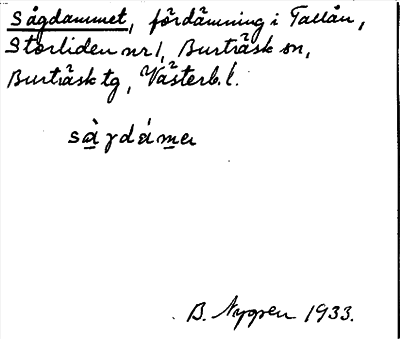 Sågdammet, fördämning i Tallån,
Storliden nr 1, Burträsk sn,
Burträsk tg, Västerb. l.
B. Nygren 1933.